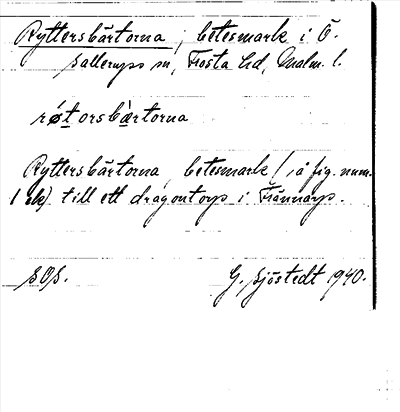 Ryttersbärtorna, betesmark i Ö.
Sallerups sn, Frosta hd, Malm. l.
røt orsbærtorna
Ryttersbärtorna, betesmark (, å fig. num.
1 ek) till ett dragontorp i Frännarp.
SOS.
G. Sjöstedt 1940.